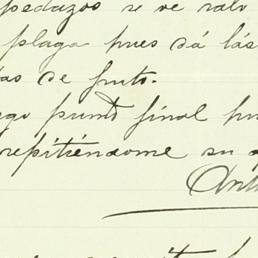 pedazos si se vé
plaga pues dá lás
as de fruto.
go punto final pu
repitiéndome su